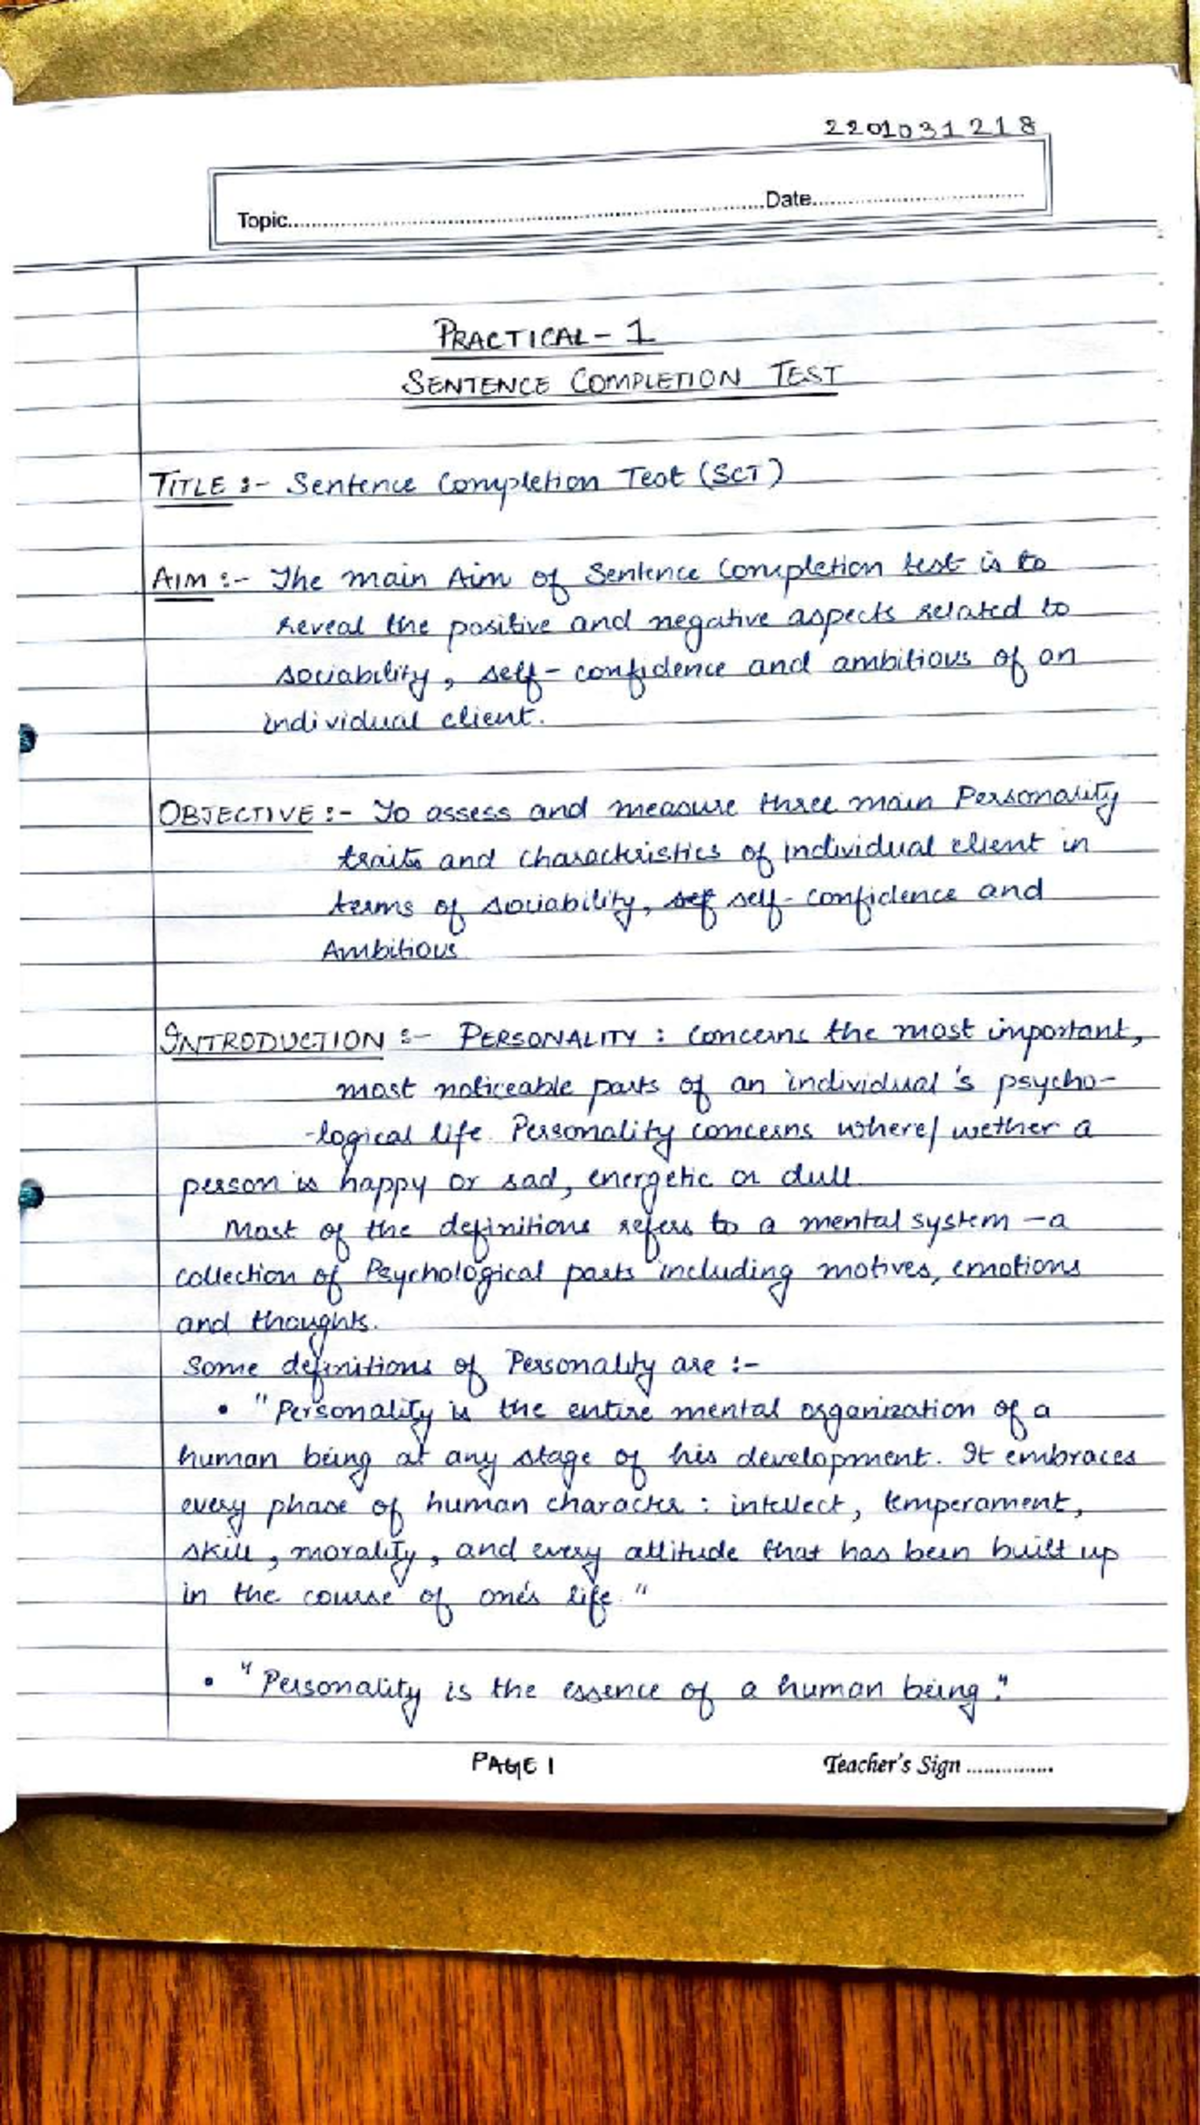 2201031218
Topic..........Date..........
PRACTICAL - 1
SENTENCE COMPLETION TEST
TITLE :- Sentence Completion Test (SCT)
AIM :- The main Aim of Sentence Completion test is to
reveal the positive and negative aspects related to
sociability, self-confidence and ambitious of an
individual client.
OBJECTIVE :- To assess and measure three main Personality
traits and characteristics of individual client in
terms of sociability, sef self-confidence and
Ambitious
INTRODUCTION :- PERSONALITY : Concerns the most important,
most noticeable parts of an individual's psycho-
-logical life. Personality concerns where/ wether a
person is happy or sad, energetic or dull.
Most of the definitions refers to a mental system - a
collection of Psychological parts including motives, emotions
and thoughts.
Some definitions of Personality are :-
• "Personality is the entire mental organization of a
human being at any stage of his development. It embraces
every phase of human character : intellect, temperament,
skill, morality, and every attitude that has been built up
in the course of one's life."
• "Personality is the essence of a human being."
PAGE 1
Teacher's Sign ...............